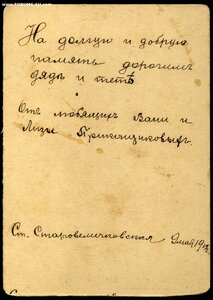 На долгую и добрую
память дорогимъ
дядѣ и тетѣ
Отъ любящихъ Вани и
Лизы Приканщиковыхъ.
Ст. Старовеличковская